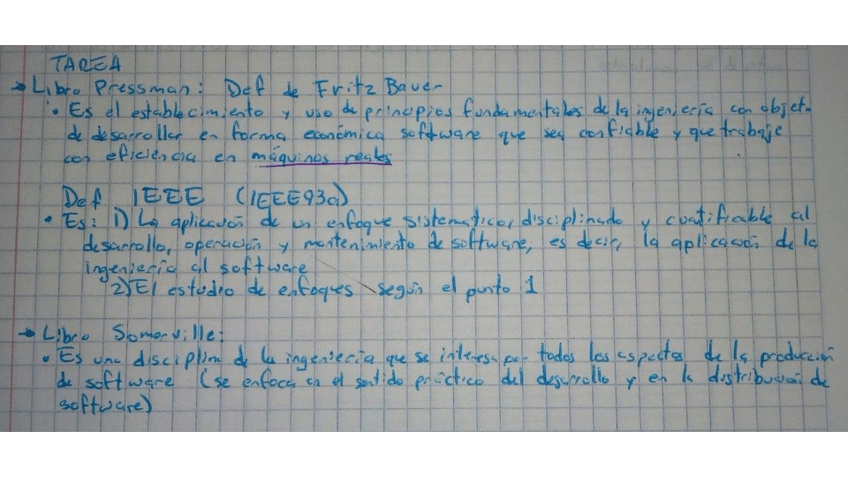 TAREA
→ Libro Pressman: Def de Fritz Bauer
• Es el establecimiento y uso de principios fundamentales de la ingeniería con objeto
de desarrollar en forma económica software que sea confiable y que trabaje
con eficiencia en máquinas reales
Def IEEE (IEEE93a)
• Es: 1) La aplicación de un enfoque sistematico, disciplinado y cuantificable al
desarrollo, operación y mantenimiento de software, es decir, la aplicación de la
ingeniería al software
2) El estudio de enfoques según el punto 1
→ Libro Somerville:
• Es una disciplina de la ingeniería que se interesa por todos los aspectos de la producción
de software (se enfoca en el sentido práctico del desarrollo y en la distribución de
software)